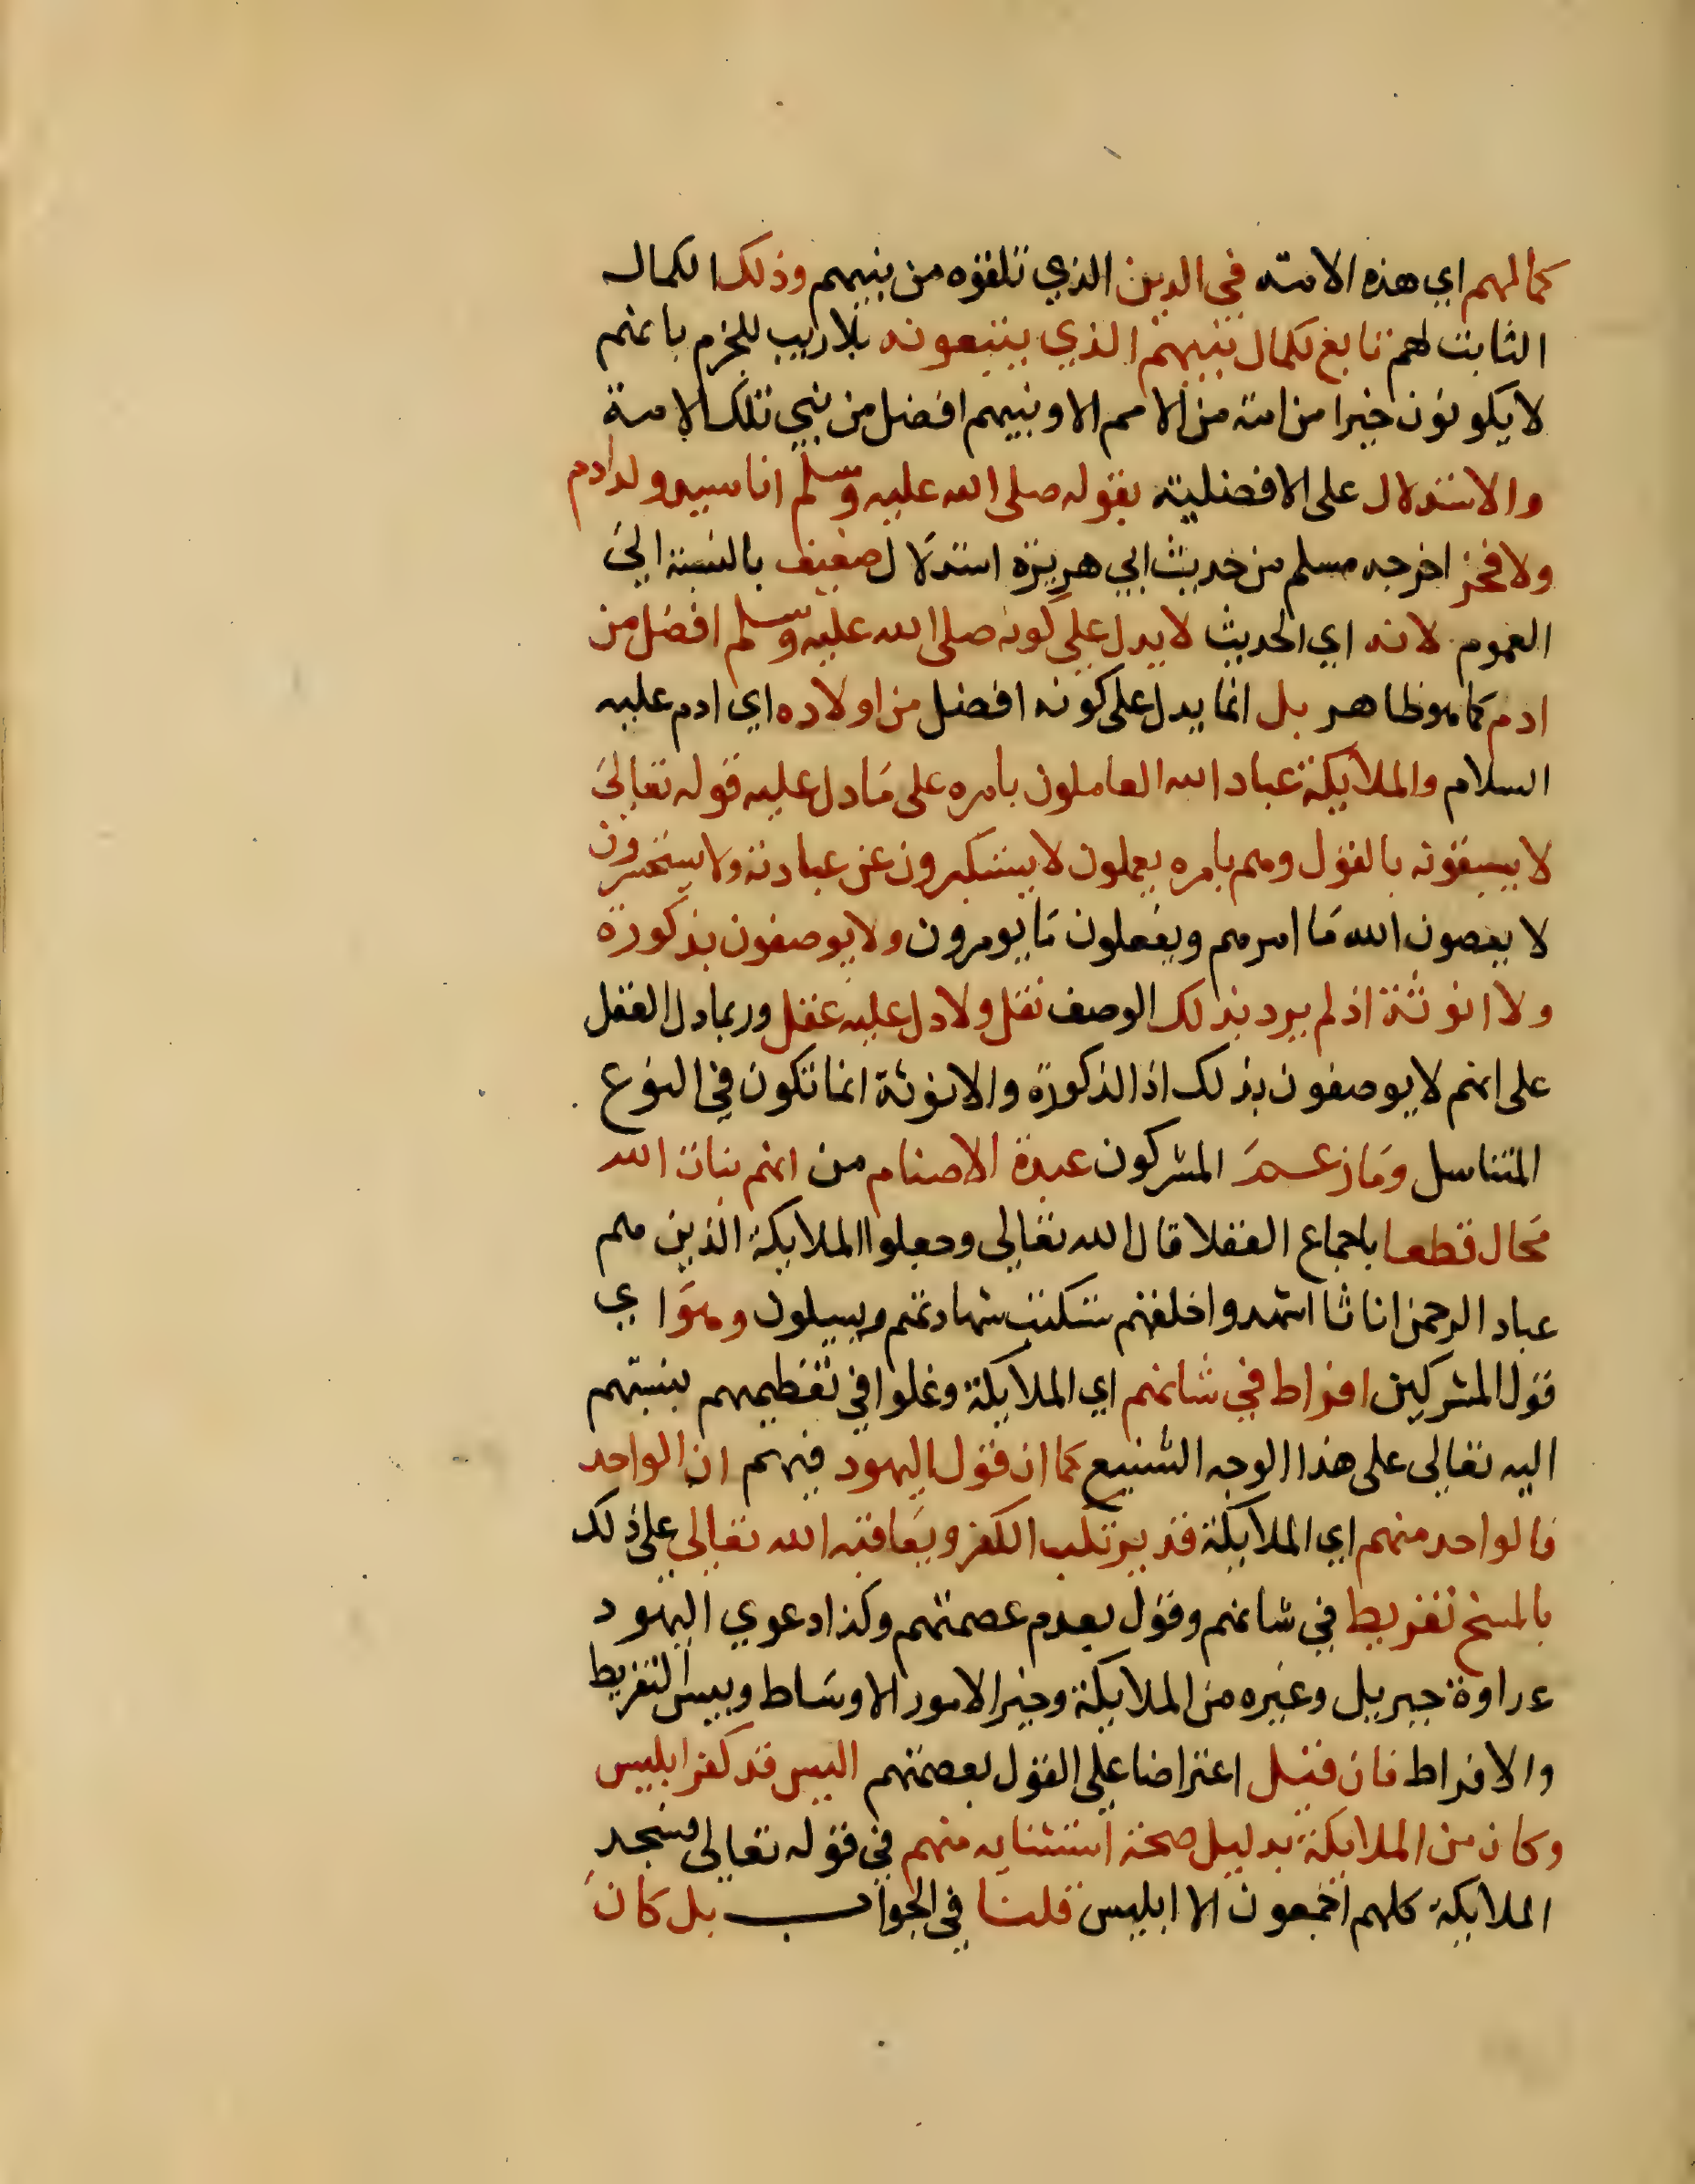 كمالهم اي هذه الامة في الدين الذي تلقوه من نبيهم وذلك الكمال
الثابت لهم تابع لكمال نبيهم الذي يتبعونه بلا ريب للجزم بانهم
لا يكونون خيرا من امة من الامم الا ونبيهم افضل من نبي تلك الامة
والاستدلال على الافضلية بقوله صلى الله عليه وسلم انا سيد ولد ادم
ولا فخر اخرجه مسلم من حديث ابي هريرة استدلال ضعيف بالنسبة الى
العموم لانه اي الحديث لا يدل على كونه صلى الله عليه وسلم افضل من
ادم كما هو ظاهر بل انما يدل على كونه افضل من اولاده اي ادم عليه
السلام والملايكة عباد الله العاملون بامره على ما دل عليه قوله تعالى
لا يسبقونه بالقول وهم بامره يعملون لا يستكبرون عن عبادته ولا يستحسرون
لا يعصون الله ما امرهم ويفعلون ما يومرون ولا يوصفون بذكورة
ولا انوثة اذ لم يرد بذلك الوصف نقل ولا دل عليه عقل وربما دل العقل
على انهم لا يوصفون بذلك اذ الذكورة والانوثة انما تكون في النوع
المتناسل وما زعم المشركون عبدة الاصنام من انهم بنات الله
محال قطعا باجماع العقلا قال الله تعالى وجعلوا الملايكة الذين هم
عباد الرحمن اناثا اشهدوا خلقهم ستكتب شهادتهم ويسيلون وهو اي
قول المشركين افراط في شانهم اي الملايكة وغلوا في تعظيمهم بنسبتهم
اليه تعالى على هذا الوجه الشنيع كما ان قول اليهود فيهم ان الواحد
فالواحد منهم اي الملايكة قد يرتكب الكفر ويعاقبه الله تعالى على ذلك
بالمسخ تفريط في شانهم وقول بعدم عصمتهم وكذا دعوي اليهود
عداوة جبريل وغيره من الملايكة وخير الامور الاوساط وبيس التفريط
والافراط فان قيل اعتراضا على القول بعصمتهم اليس قد كفر ابليس
وكان من الملايكة بدليل صحة استثنايه منهم في قوله تعالى فسجد
الملايكة كلهم اجمعون الا ابليس قلنا في الجواب بل كان